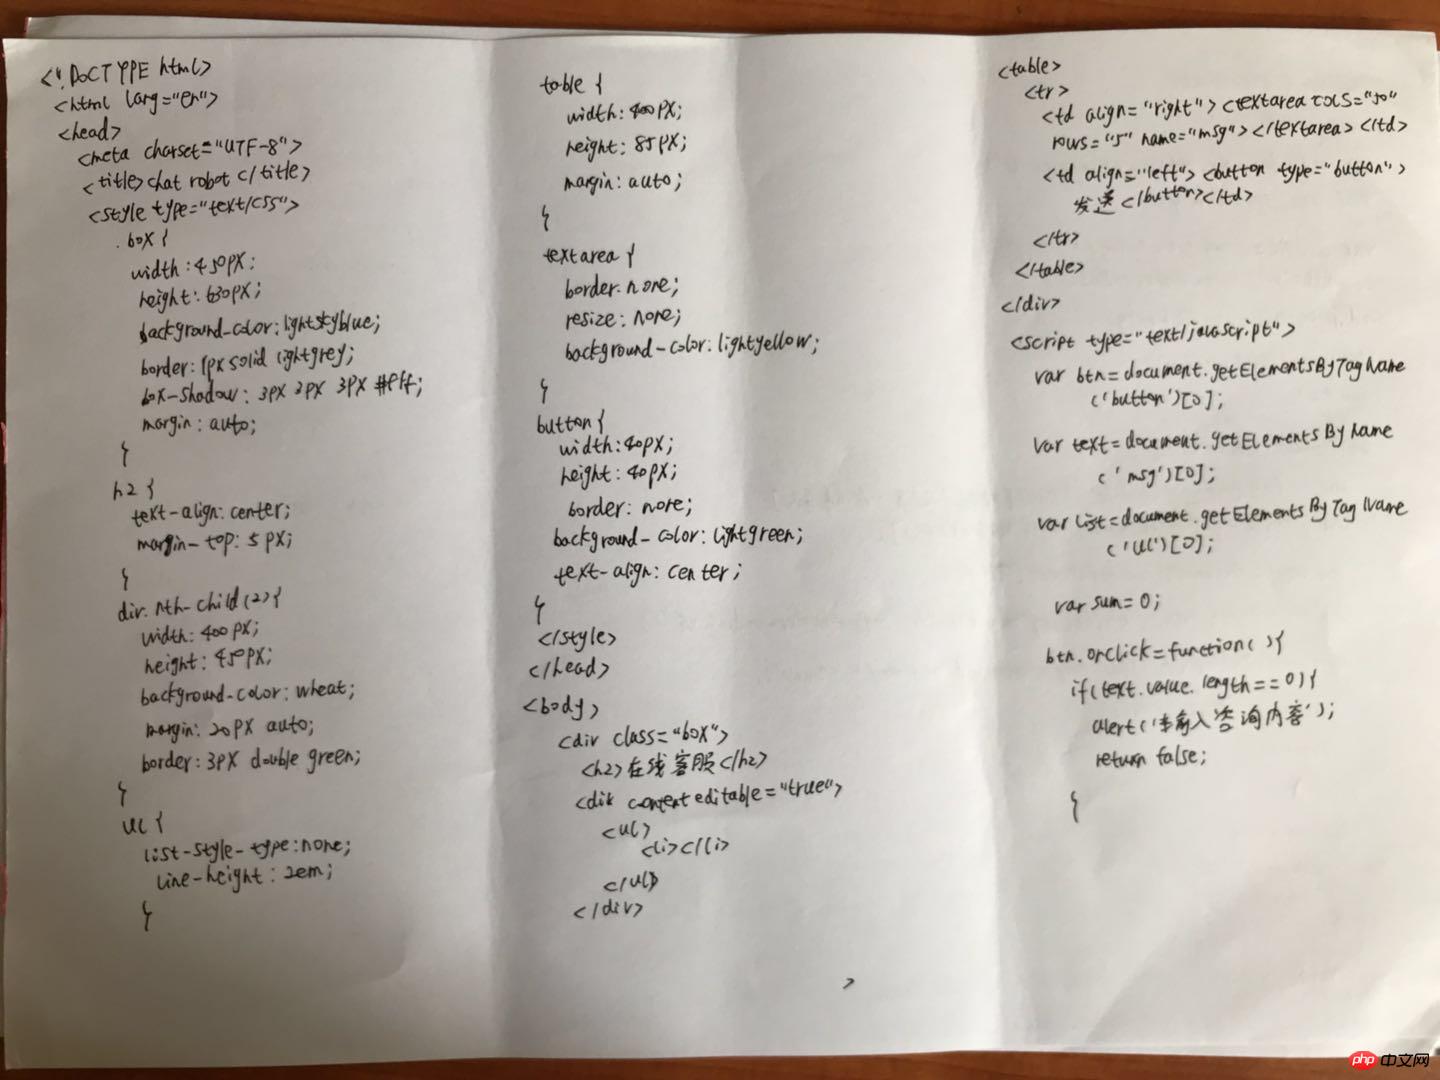 <!DOCTYPE html>
<html lang="en">
<head>
<meta charset="UTF-8">
<title>chat robot </title>
<style type="text/css">
.box{
width:450px;
height:630px;
background-color:lightskyblue;
border:1px solid lightgrey;
box-shadow: 3px 2px 3px #fff;
margin: auto;
}
h2 {
text-align:center;
margin-top:5px;
}
div.nth-child(2){
width:400px;
height:450px;
background-color:wheat;
margin:20px auto;
border:3px double green;
}
ul {
list-style-type:none;
line-height:2em;
}
table {
width:400px;
height:85px;
margin:auto;
}
textarea {
border.none;
resize:none;
background-color:lightyellow;
}
button{
width:40px;
height:40px;
border:none;
background-color:lightgreen;
text-align:center;
}
</style>
</head>
<body>
<div class="box">
<h2>在线客服</h2>
<div contenteditable="true">
<ul>
<li></li>
</ul>
</div>
>
<table>
<tr>
<td align="right"><textarea cols="50"
rows="5" name="msg"></textarea></td>
<td align="left"><button type="button">
发送</button></td>
</tr>
</table>
</div>
<script type="text/javascript">
var btn=document.getElementsByTagName
('button')[0];
var text=document.getElementsByName
('msg')[0];
var list=document.getElementsByTagName
('ul')[0];
var sum=0;
btn.onclick=function(){
if(text.value.length==0){
alert('输入咨询内容');
return false;
}
php 中文网